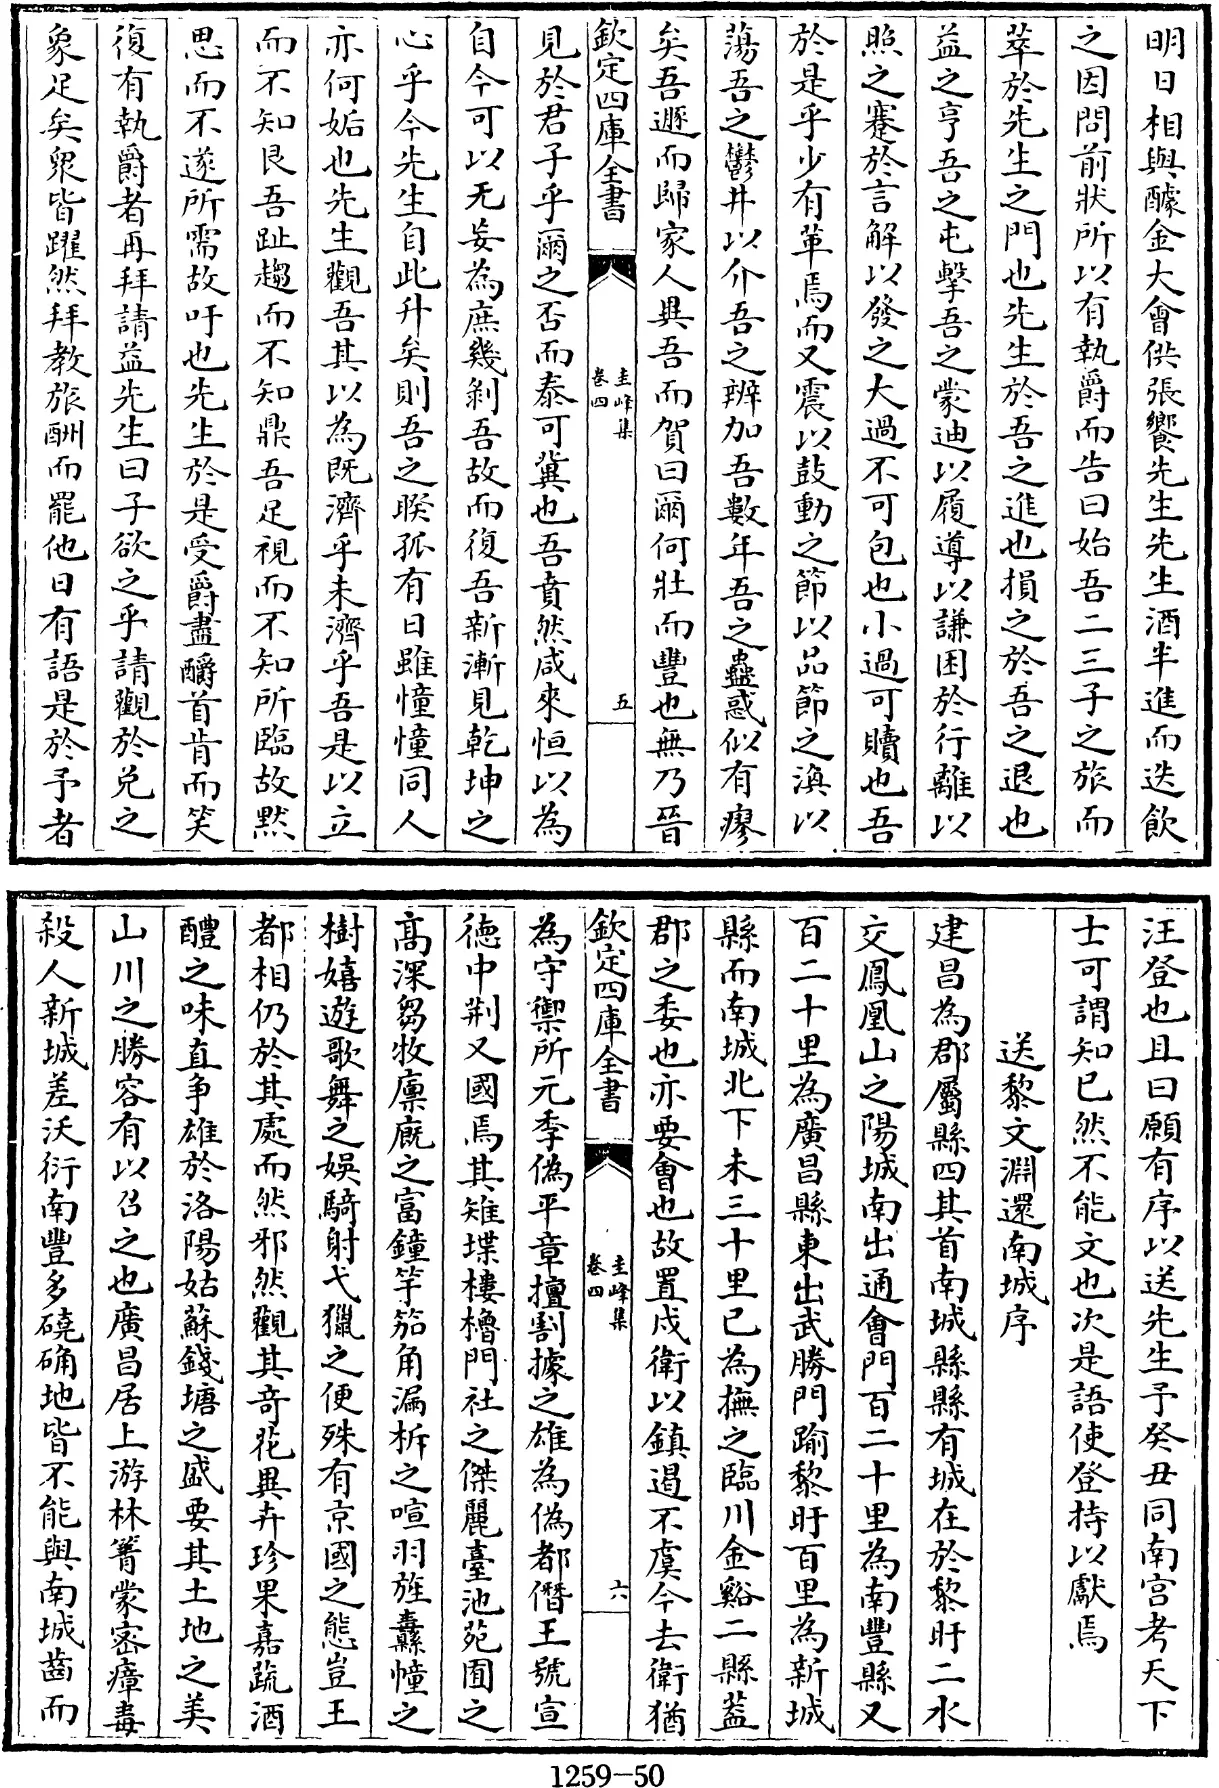 明日相與醵金大會供張饗先生先生酒半進而迭飲
之因問前狀所以有執爵而告曰始吾二三子之旅而
萃於先生之門也先生於吾之進也損之於吾之退也
益之亨吾之屯擊吾之蒙迪以履導以謙困於行離以
照之蹇於言解以發之大過不可包也小過可贖也吾
於是乎少有革焉而又震以鼓動之節以品節之渙以
蕩吾之鬱井以介吾之辨加吾數年吾之蠱惑似有瘳
矣吾遯而歸家人異吾而賀曰爾何壯而豐也無乃晉
欽定四庫全書
圭峰集
卷四
五
見於君子乎爾之否而泰可冀也吾賁然咸來恒以為
自今可以无妄為庶幾剝吾故而復吾新漸見乾坤之
心乎今先生自此升矣則吾之睽孤有日雖憧憧同人
亦何姤也先生觀吾其以為既濟乎未濟乎吾是以立
而不知艮吾趾趨而不知鼎吾足視而不知所臨故默
思而不遂所需故吁也先生於是受爵盡釂首肯而笑
復有執爵者再拜請益先生曰子欲之乎請觀於兌之
象足矣衆皆躍然拜教旅酬而罷他日有語是於予者
汪登也且曰願有序以送先生予癸丑同南宫考天下
士可謂知已然不能文也次是語使登持以獻焉
送黎文淵還南城序
建昌為郡屬縣四其首南城縣縣有城在於黎盱二水
交鳳凰山之陽城南出通會門百二十里為南豐縣又
百二十里為廣昌縣東出武勝門踰黎盱百里為新城
縣而南城北下未三十里已為撫之臨川金谿二縣蓋
郡之委也亦要會也故置戍衛以鎮遏不虞今去衛猶
欽定四庫全書
圭峰集
卷四
六
為守禦所元季偽平章擅割據之雄為偽都僭王號宣
德中荆又國焉其雉堞樓櫓門社之傑麗臺池苑囿之
高深芻牧廪廐之富鐘竽笳角漏柝之喧羽旌纛幢之
樹嬉遊歌舞之娛騎射弋獵之便殊有京國之態豈王
都相仍於其處而然邪然觀其竒花異卉珍果嘉蔬酒
醴之味直争雄於洛陽姑蘇錢塘之盛要其土地之美
山川之勝容有以召之也廣昌居上游林箐蒙密瘴毒
殺人新城差沃衍南豐多磽确地皆不能與南城齒而
1259-50